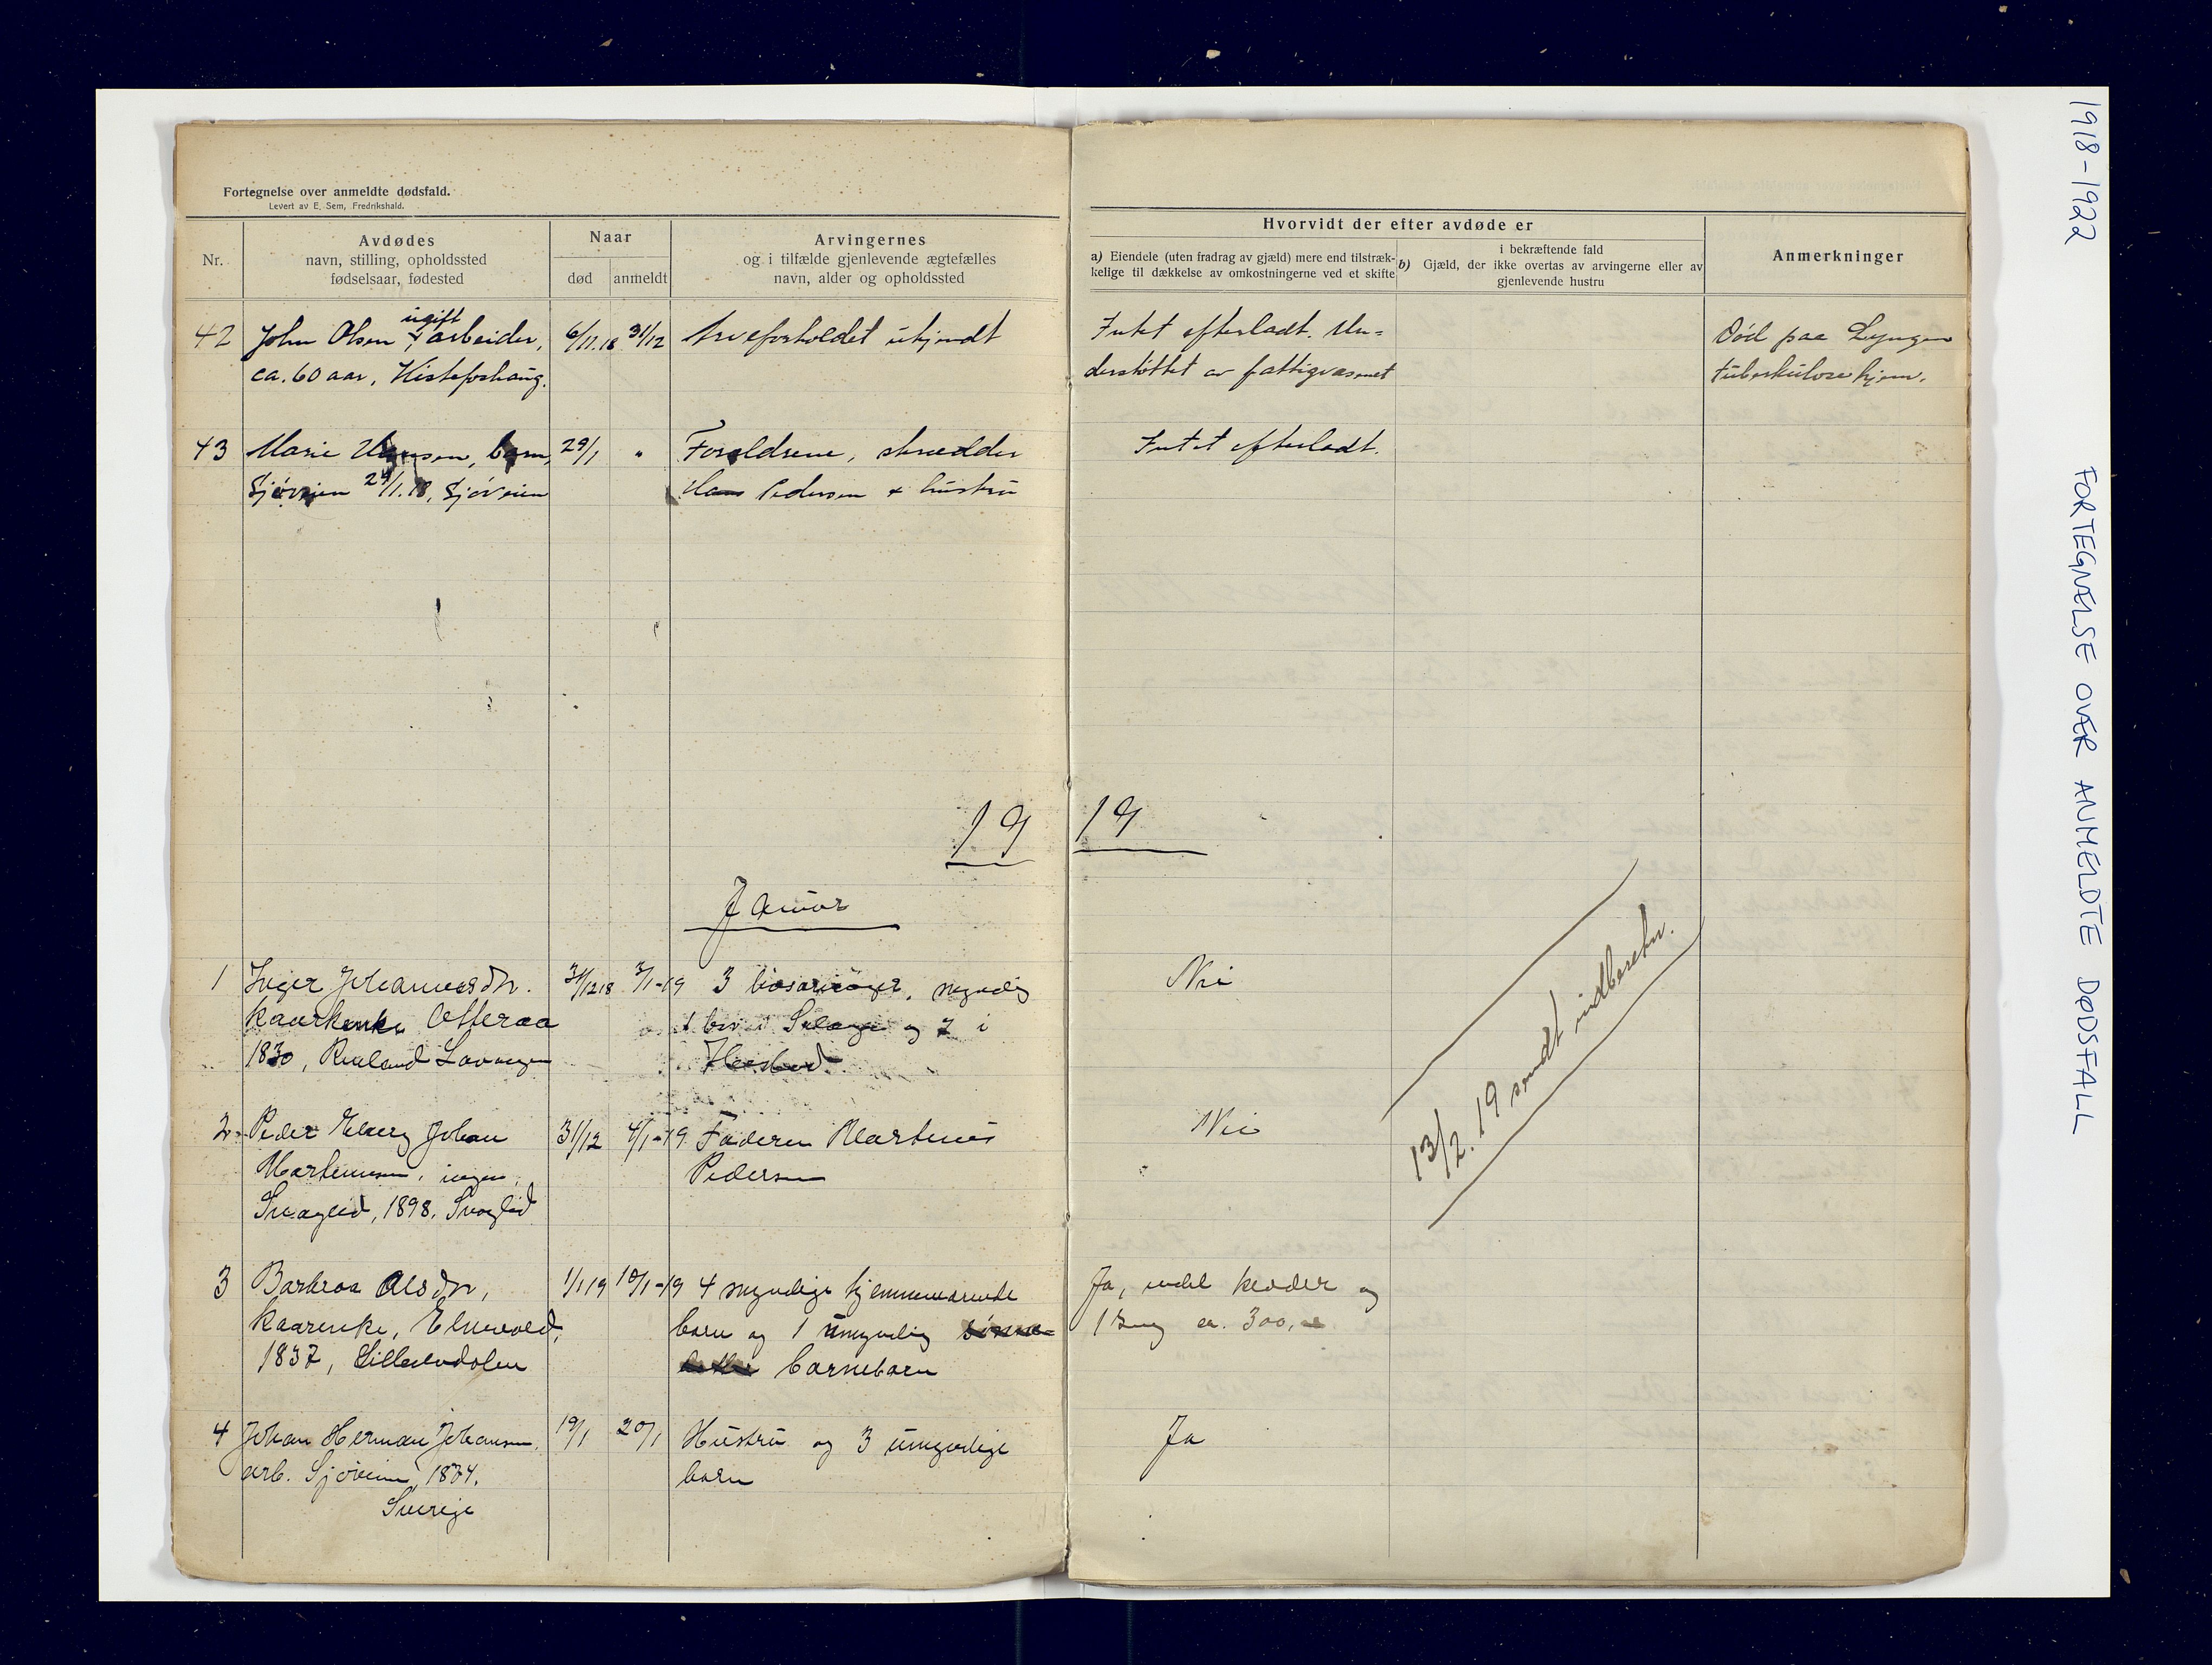 Fortegnelse over anmeldte dødsfald.
Levert av E. Sem, Fredrikshald.
Nr.
Avdødes
navn, stilling, opholdssted
fødselsaar, fødested
Naar
død
anmeldt
Arvingernes
og i tilfælde gjenlevende ægtefælles
navn, alder og opholdssted
42 John Olsen ugift arbeider, 6/11.18 31/12 Arveforholdet ukjendt
ca. 60 aar,
43 Marie Hansen, barn, 29/1 " Forældrene, skrædder
Sjøveien 24/1.18, Sjøveien Hans Pedersen + hustru
19
Januar
1 Inger Johannesdtr. 31/12 18 3/1-19 3 livsarvinger, myndig
kaarenke Otteraa og 2 i
1830,
2 Peder Johan 31/12 4/1-19 Faderen Martinus
Martinusen, ingen, Pedersen
1898,
3 Barbroa Olsdtr, 1/1 19 10/1-19 4 myndige hjemmeværende
kaarenke, Elnevold, barn og 1 umyndig
1837, Lilleelvdalen barnebarn
4 Johan Herman Johansen, 19/1 20/1 Hustru og 3 umyndige
arb. Sjøveien, 1874. barn
Sverige
Hvorvidt der efter avdøde er
a) Eiendele (uten fradrag av gjæld) mere end tilstræk-
kelige til dækkelse av omkostningerne ved et skifte
i bekræftende fald
b) Gjæld, der ikke overtas av arvingerne eller av
gjenlevende hustru
Anmerkninger
Intet efterladt. Un- Død paa Lyngen
derstøttet av fattigvæsenet tuberkulosehjem.
Intet efterladt.
19
Nei
13/2.19 sendt indberetn.
Nei
Ja, endel klæder og
ca. 300,
Ja
1918-1922
FORTEGNELSE OVER ANMELDTE DØDSFALL